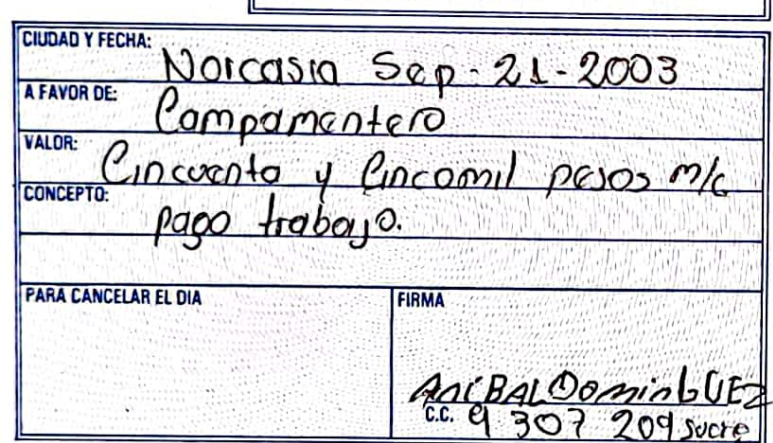 CIUDAD Y FECHA: Norcasia Sep-21-2003
A FAVOR DE: Campamentero
VALOR: Cincuenta y Cincomil pesos m/c
CONCEPTO: pago trabajo.
PARA CANCELAR EL DIA
FIRMA
AniBAL DominGUEZ
C.C. 9 307 209 sucre